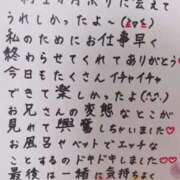 うれしかったよ～
私のためにお仕事早く
終わらせてくれてありがとう
今日もたくさんイチャイチャ
できて楽しかった(^^)
お兄さんの変態なとこが
見れて興奮しちゃいました♡♡
お風呂やベットでエッチな
ことするのドキドキしました♡
最後は一緒に気持ちよく